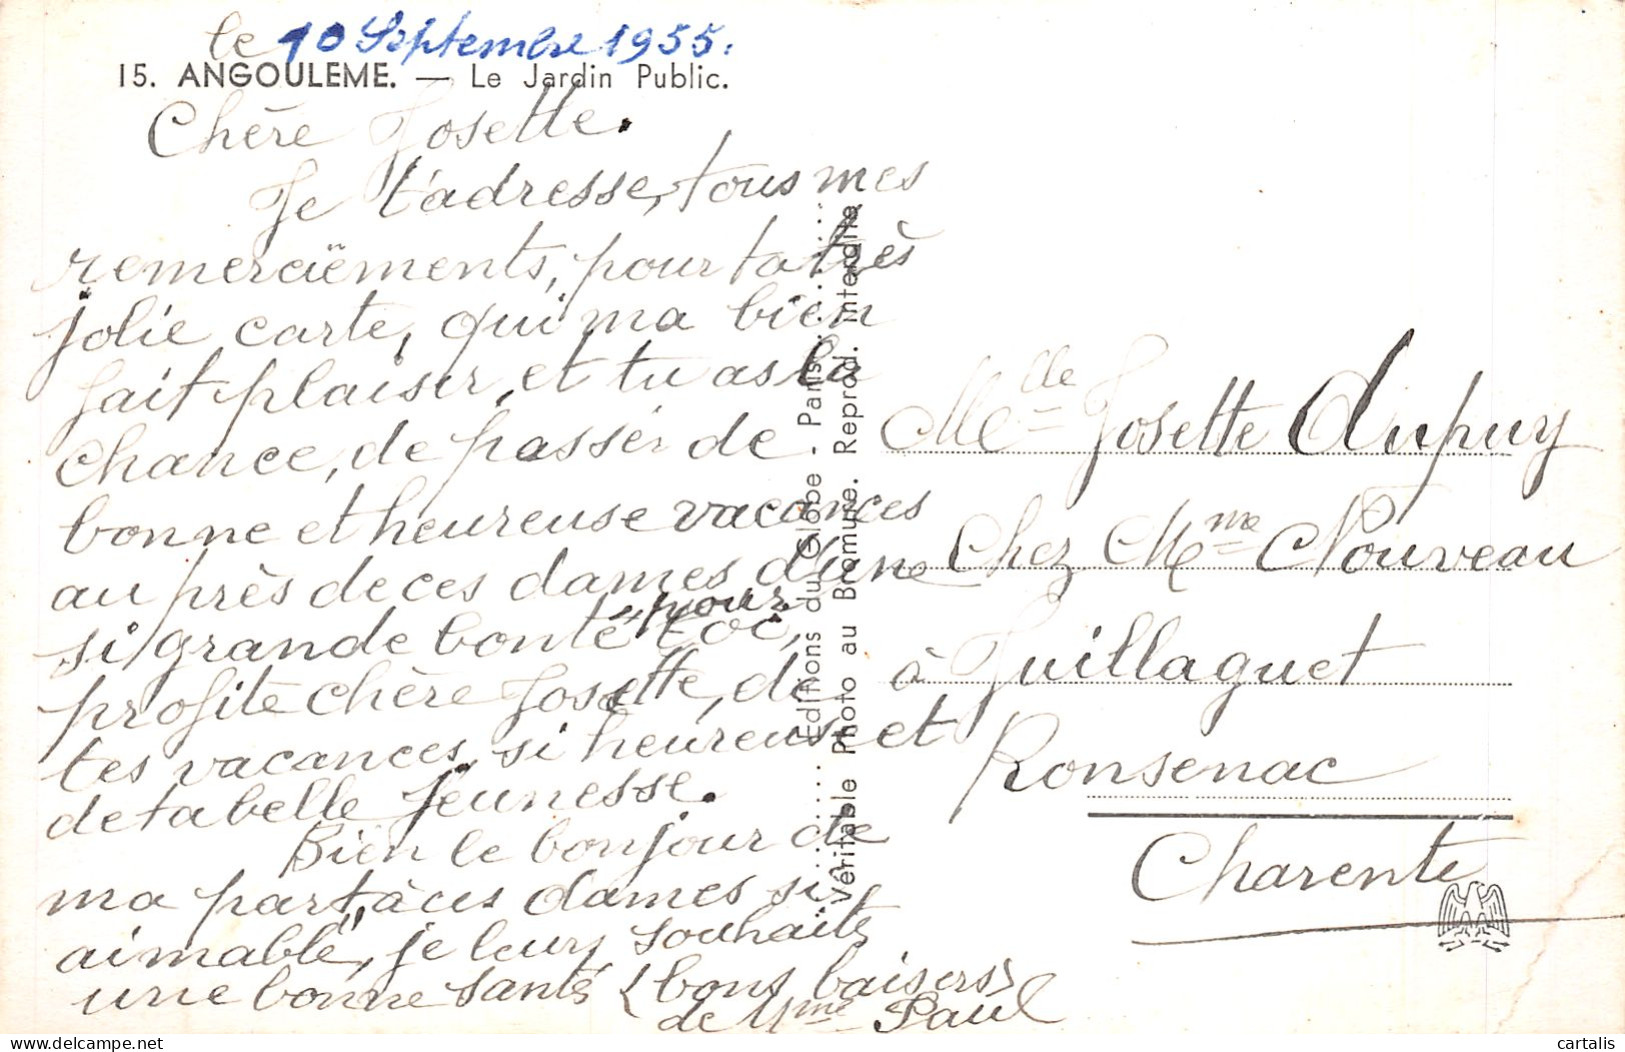 le 10 Septembre 1955.
15. ANGOULEME. — Le Jardin Public.
Chère Josette.
Je t'adresse, tous mes
remerciëments, pour ta très
jolie carte, qui ma bien
fait plaisir, et tu as la
chance, de passér de
bonne et heureuse vacances
au près de ces dames d'une
si grande bonté "pour toi,
profite chère Josette, de
tes vacances si heureuse et
de ta belle Jeunesse.
Bien le bonjour de
ma part à ces dames si
aimable", je leurs souhaite
une bonne santé (bons baisers)
de Mme Paul
Editions du Globe - Paris
Véritable Photo au Bromure. Reprod. interdite
Melle Josette Dupuy
Chez Mme Nouveau
à Juillaguet
Ronsenac
Charente
cartalis